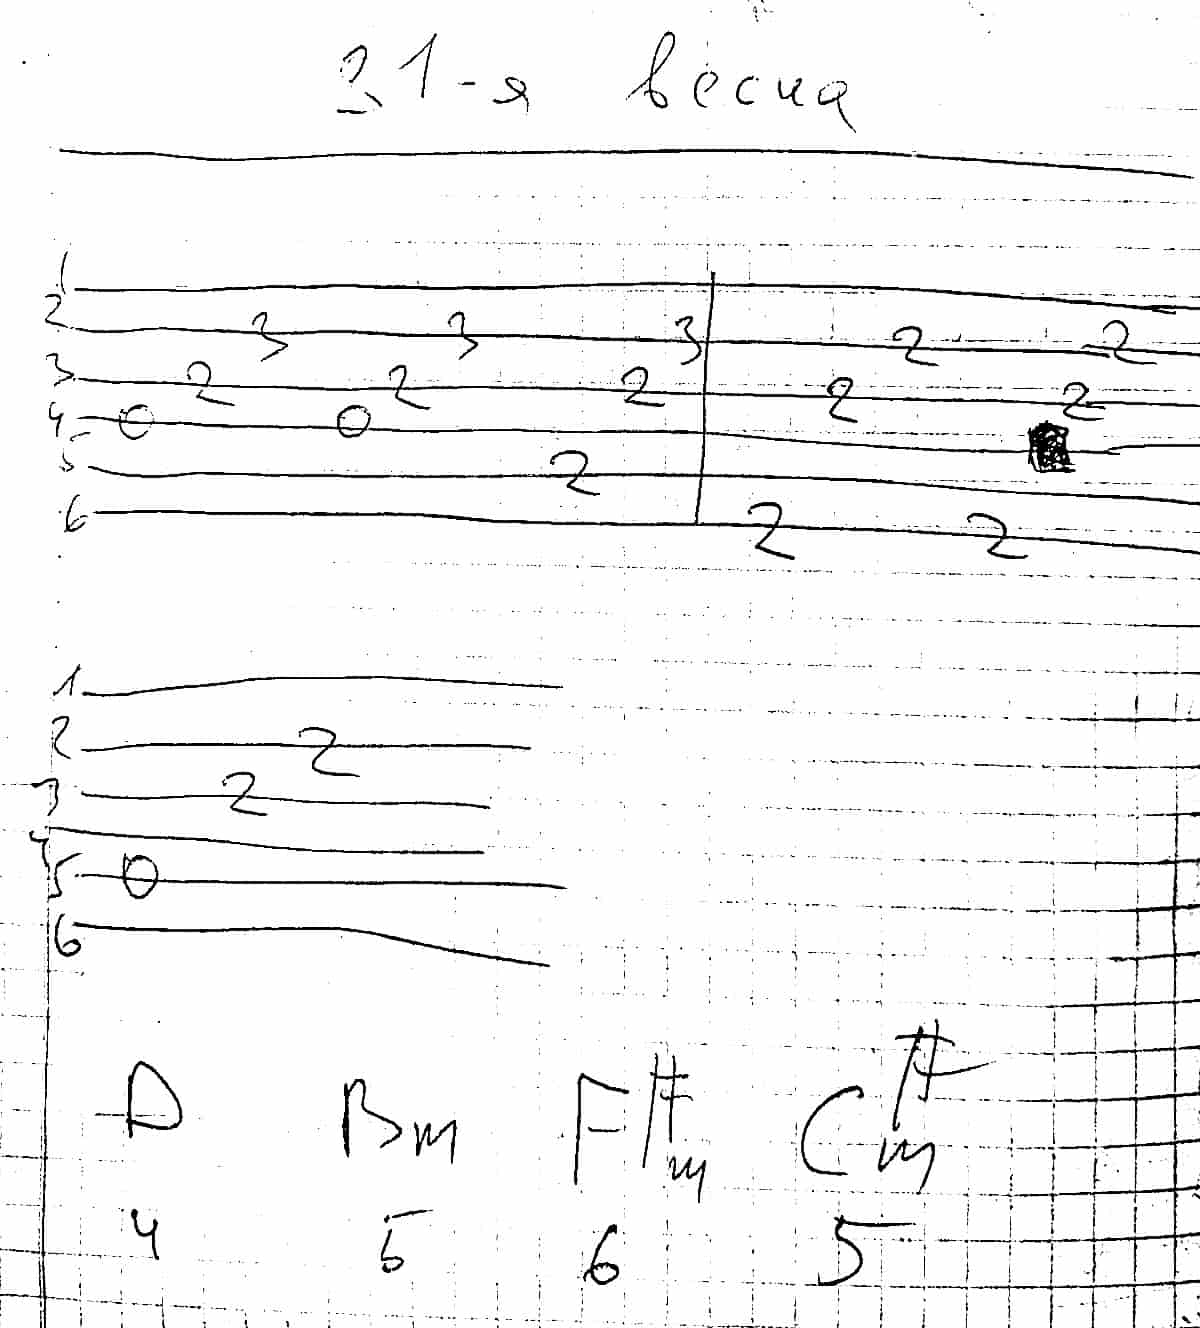 31-я весна
1
2 3 3 3 2 2
3 2 2 2 2 2
4 0 0
5 2
6 2 2
1
2 2
3 2
4
5 0
6
D Bm F#m C#m
4 5 6 5